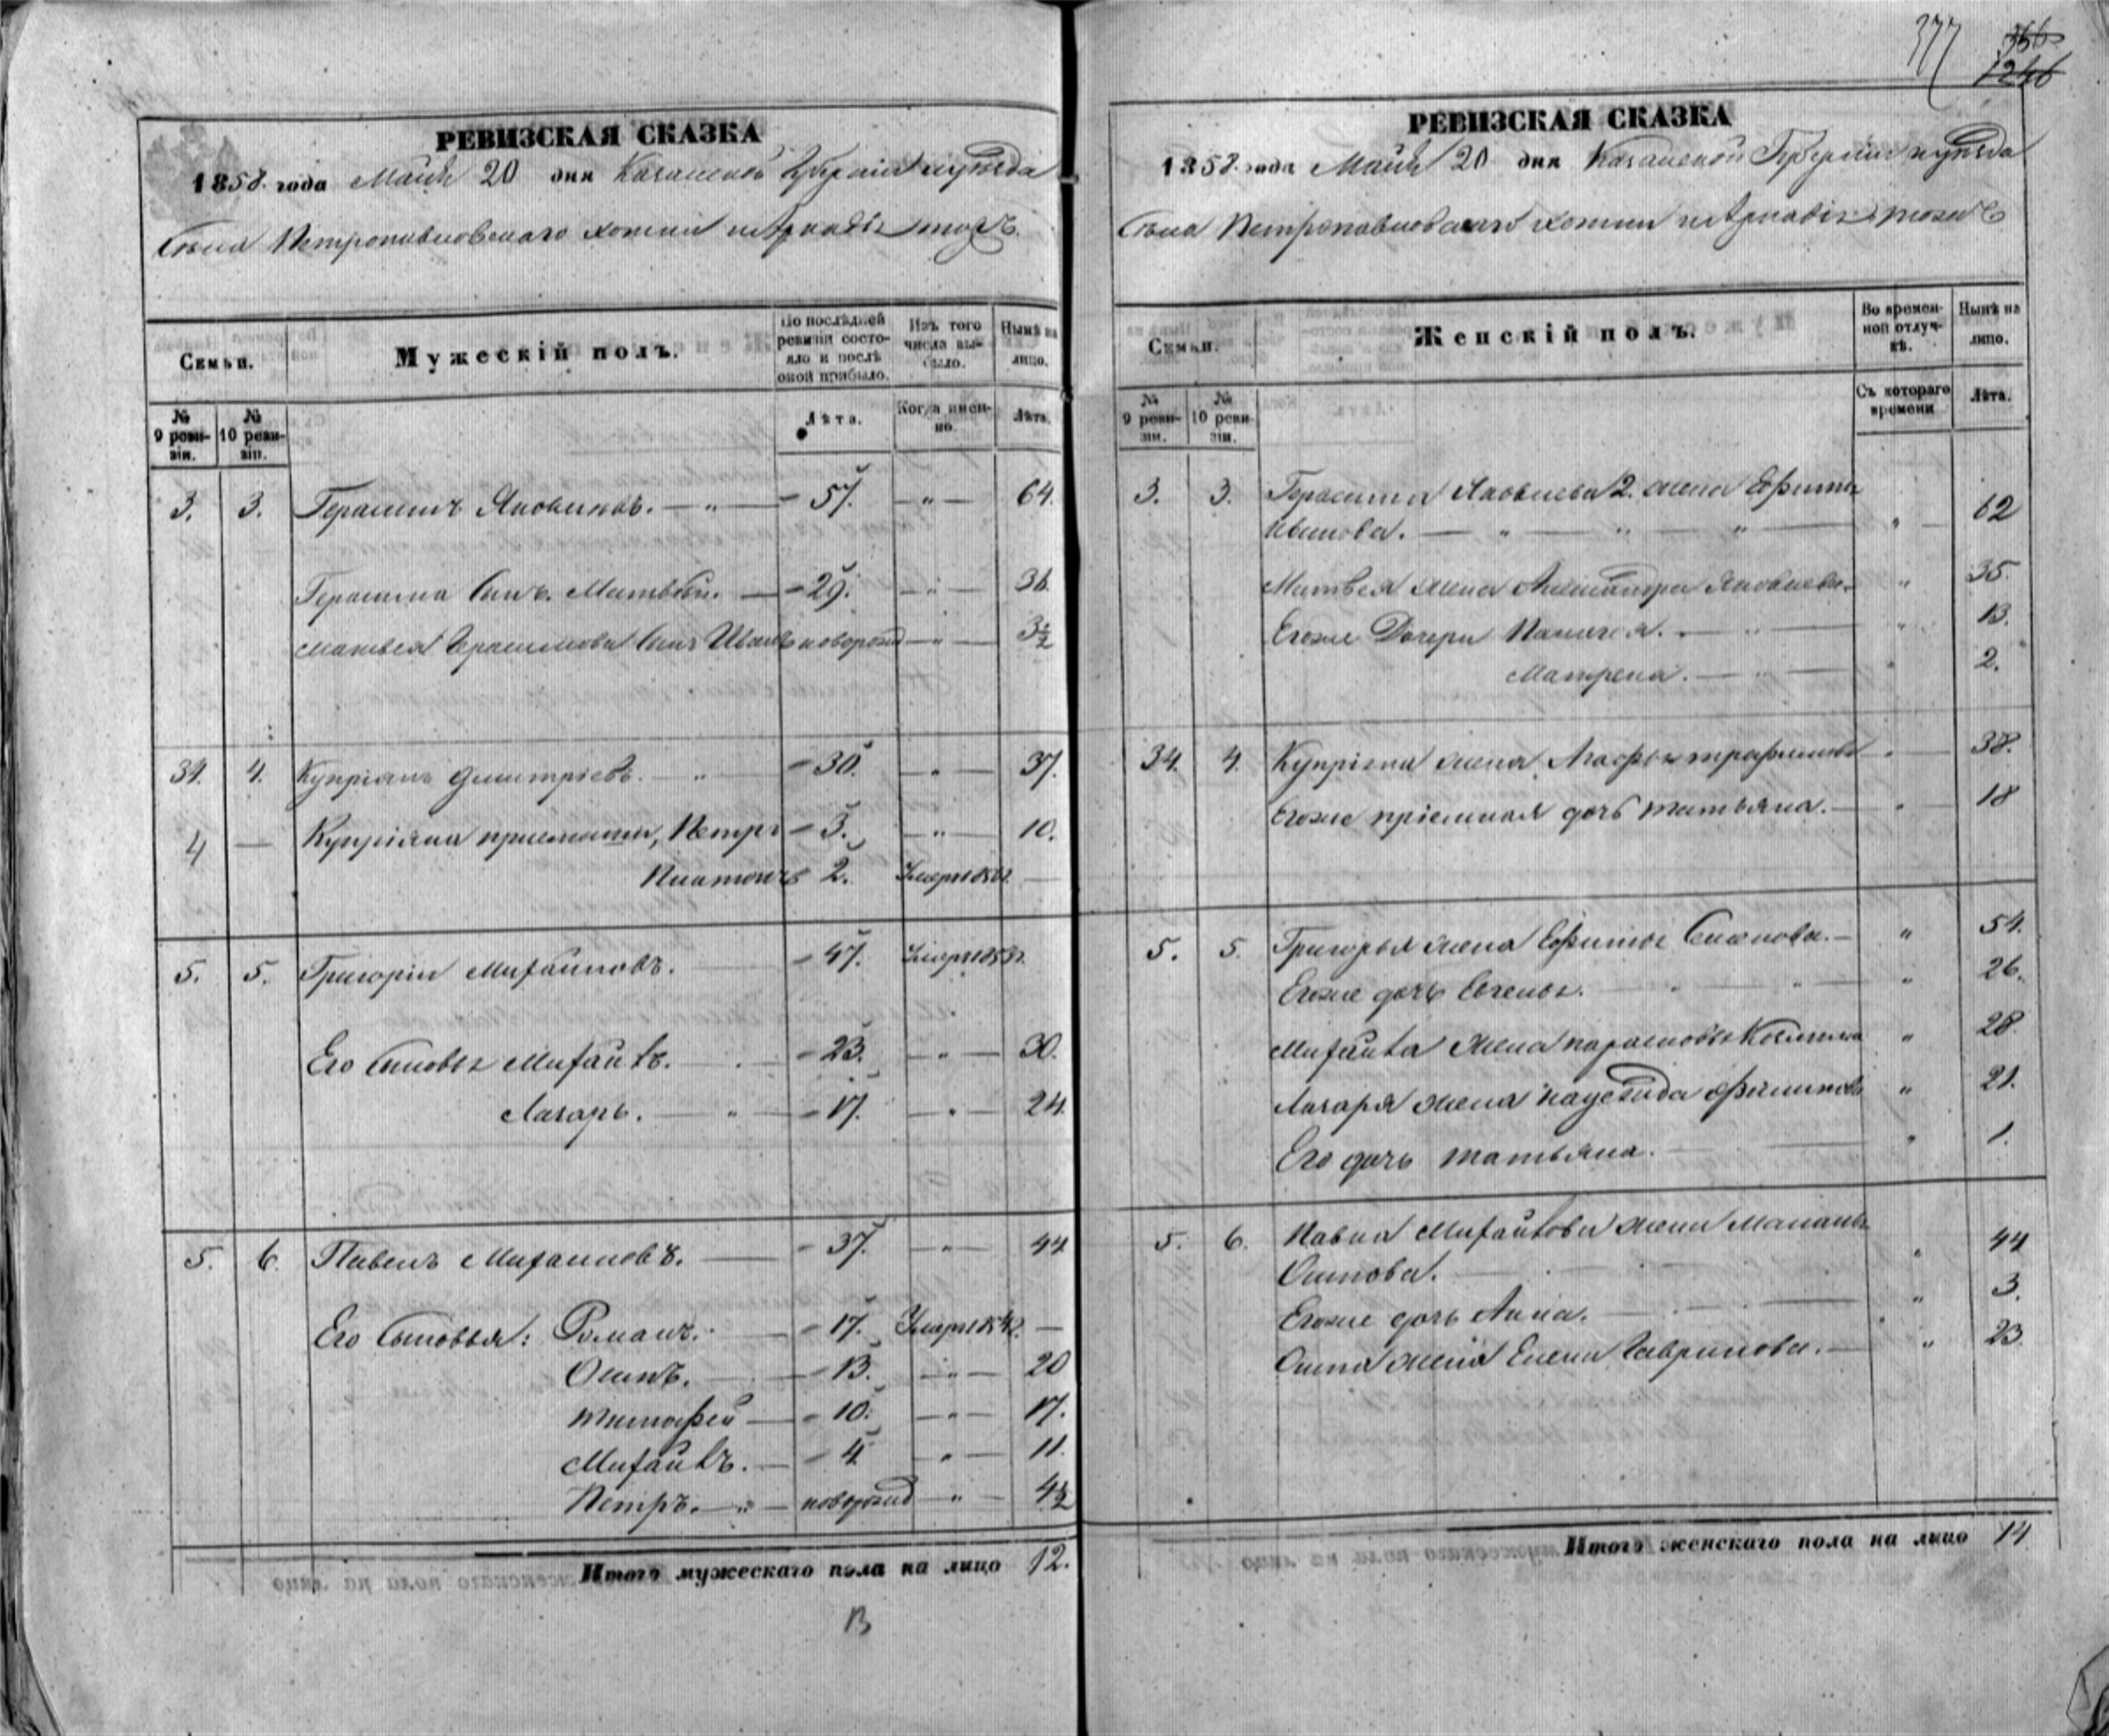 377
366
1246
РЕВИЗСКАЯ СКАЗКА
1858 года Маія 20 дня Казанской Губерніи и уѣзда
Села Петропавловскаго тожъ
Семьи.
Мужескій полъ.
По послѣдней ревизіи состояло и послѣ оной прибыло.
Изъ того числа выбыло.
Нынѣ на лицо.
№ 9 ревизіи.
№ 10 ревизіи.
Лѣта.
Когда именно.
Лѣта.
3. 3. Герасимъ Яковлевъ. — „ — 57. — „ — 64.
Герасима Сынъ Матвѣй. — 29. — „ — 36.
Матвея Герасимова Сынъ Иванъ новорожд — „ — 3½
34. 4. Купріянъ Дмитріевъ. — „ 30. — „ — 37.
4 — Купріяна приемыши, Петръ 3. — „ — 10.
Платонъ 2. —
5. 5. Григорій Михайловъ. — 47.
Его Сыновья Михайлъ. — 23. — „ — 30.
Лазарь. — „ — 17. — „ — 24.
5. 6. Павелъ Михайловъ. — 37. — „ — 44
Его Сыновья: Романъ. — 17. —
Осипъ. — 13. — „ — 20
Тимофей — 10. — „ — 17.
Михайлъ. — 4 „ — 11.
Петръ. — „ — новорожд — „ — 4½
Итого мужескаго пола на лицо 12.
13
РЕВИЗСКАЯ СКАЗКА
1858 года Маія 20 дня Казанской Губерніи и уѣзда
Села Петропавловскаго тожъ
Семьи.
Женскій полъ.
Во временной отлучкѣ.
Нынѣ на лицо.
№ 9 ревизіи.
№ 10 ревизіи.
Съ котораго времени
Лѣта.
3. 3. Герасима Яковлева 2. жена Ефимья
Иванова. — „ — „ — „ — 62
Матвея жена Александра Яковлева „ 35.
Егоже Дочери Палагея. — „ — 13.
Матрена. — „ — 2.
34. 4. Купріяна жена Агафья Трафимова 38.
Егоже пріемная дочь Татьяна. — 18
5. 5. Григорья жена Ефимья Семенова. — „ 54.
Егоже дочь Евгенья. „ 26.
Михайла жена Парасковья „ 28.
Лазаря жена Надежда „ 21.
Его дочь Татьяна. „ 1.
5. 6. Павла Михайлова жена Маланья
Осипова. „ 44
Егоже дочь Анна. „ 3.
Осипа жена Елена Гаврилова. — „ 23.
Итого женскаго пола на лицо 14